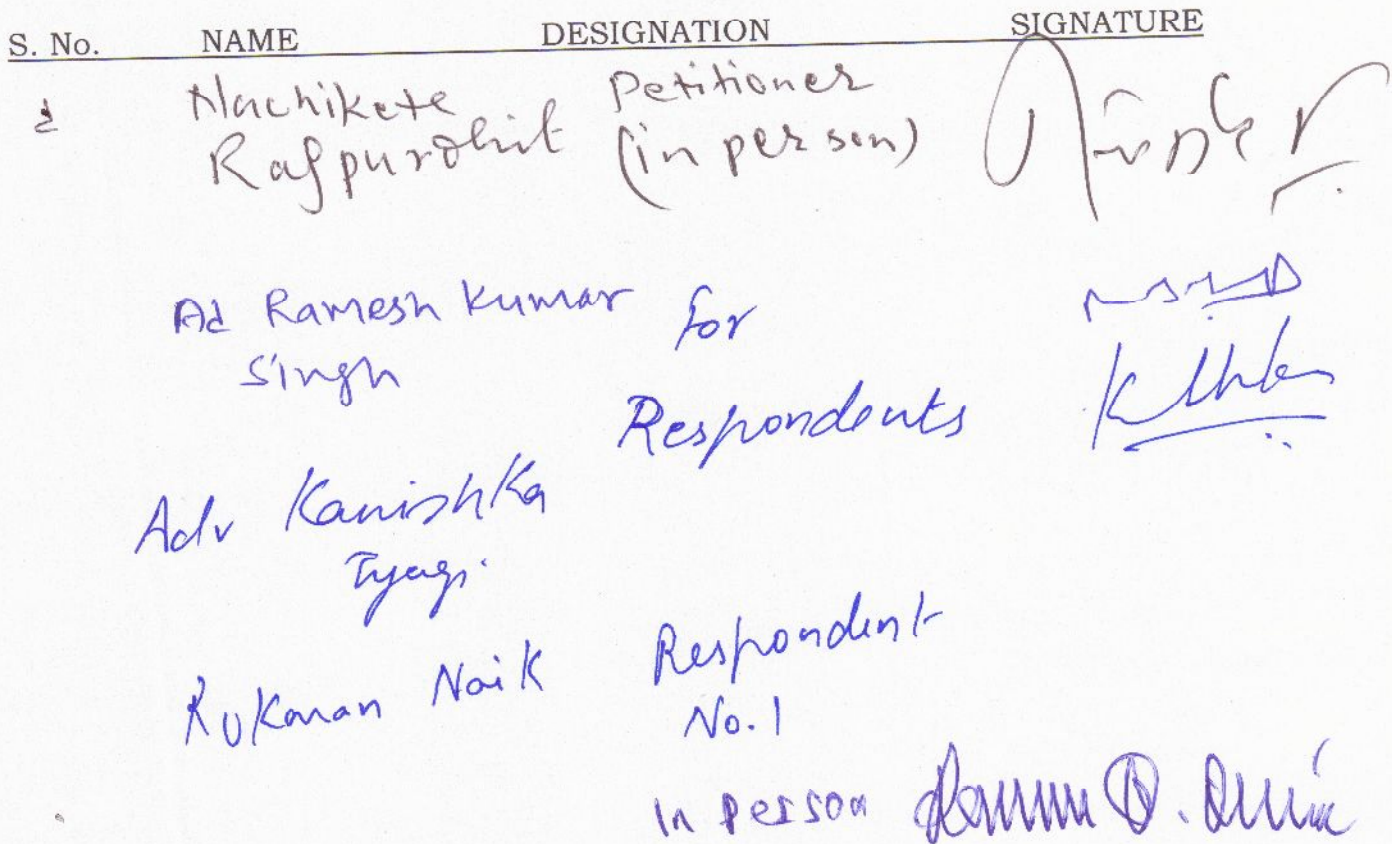 S. No. NAME DESIGNATION SIGNATURE
Nachikete Petitioner
Rajpurohit (in person)
Ad Ramesh Kumar for
Singh
Respondents
Adv Kanishka
Tyagi
Rukanan Naik Respondent
No. 1
In person